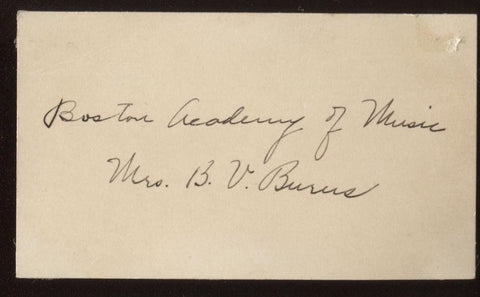 Boston Academy of Music
Mrs. B. V. Burus